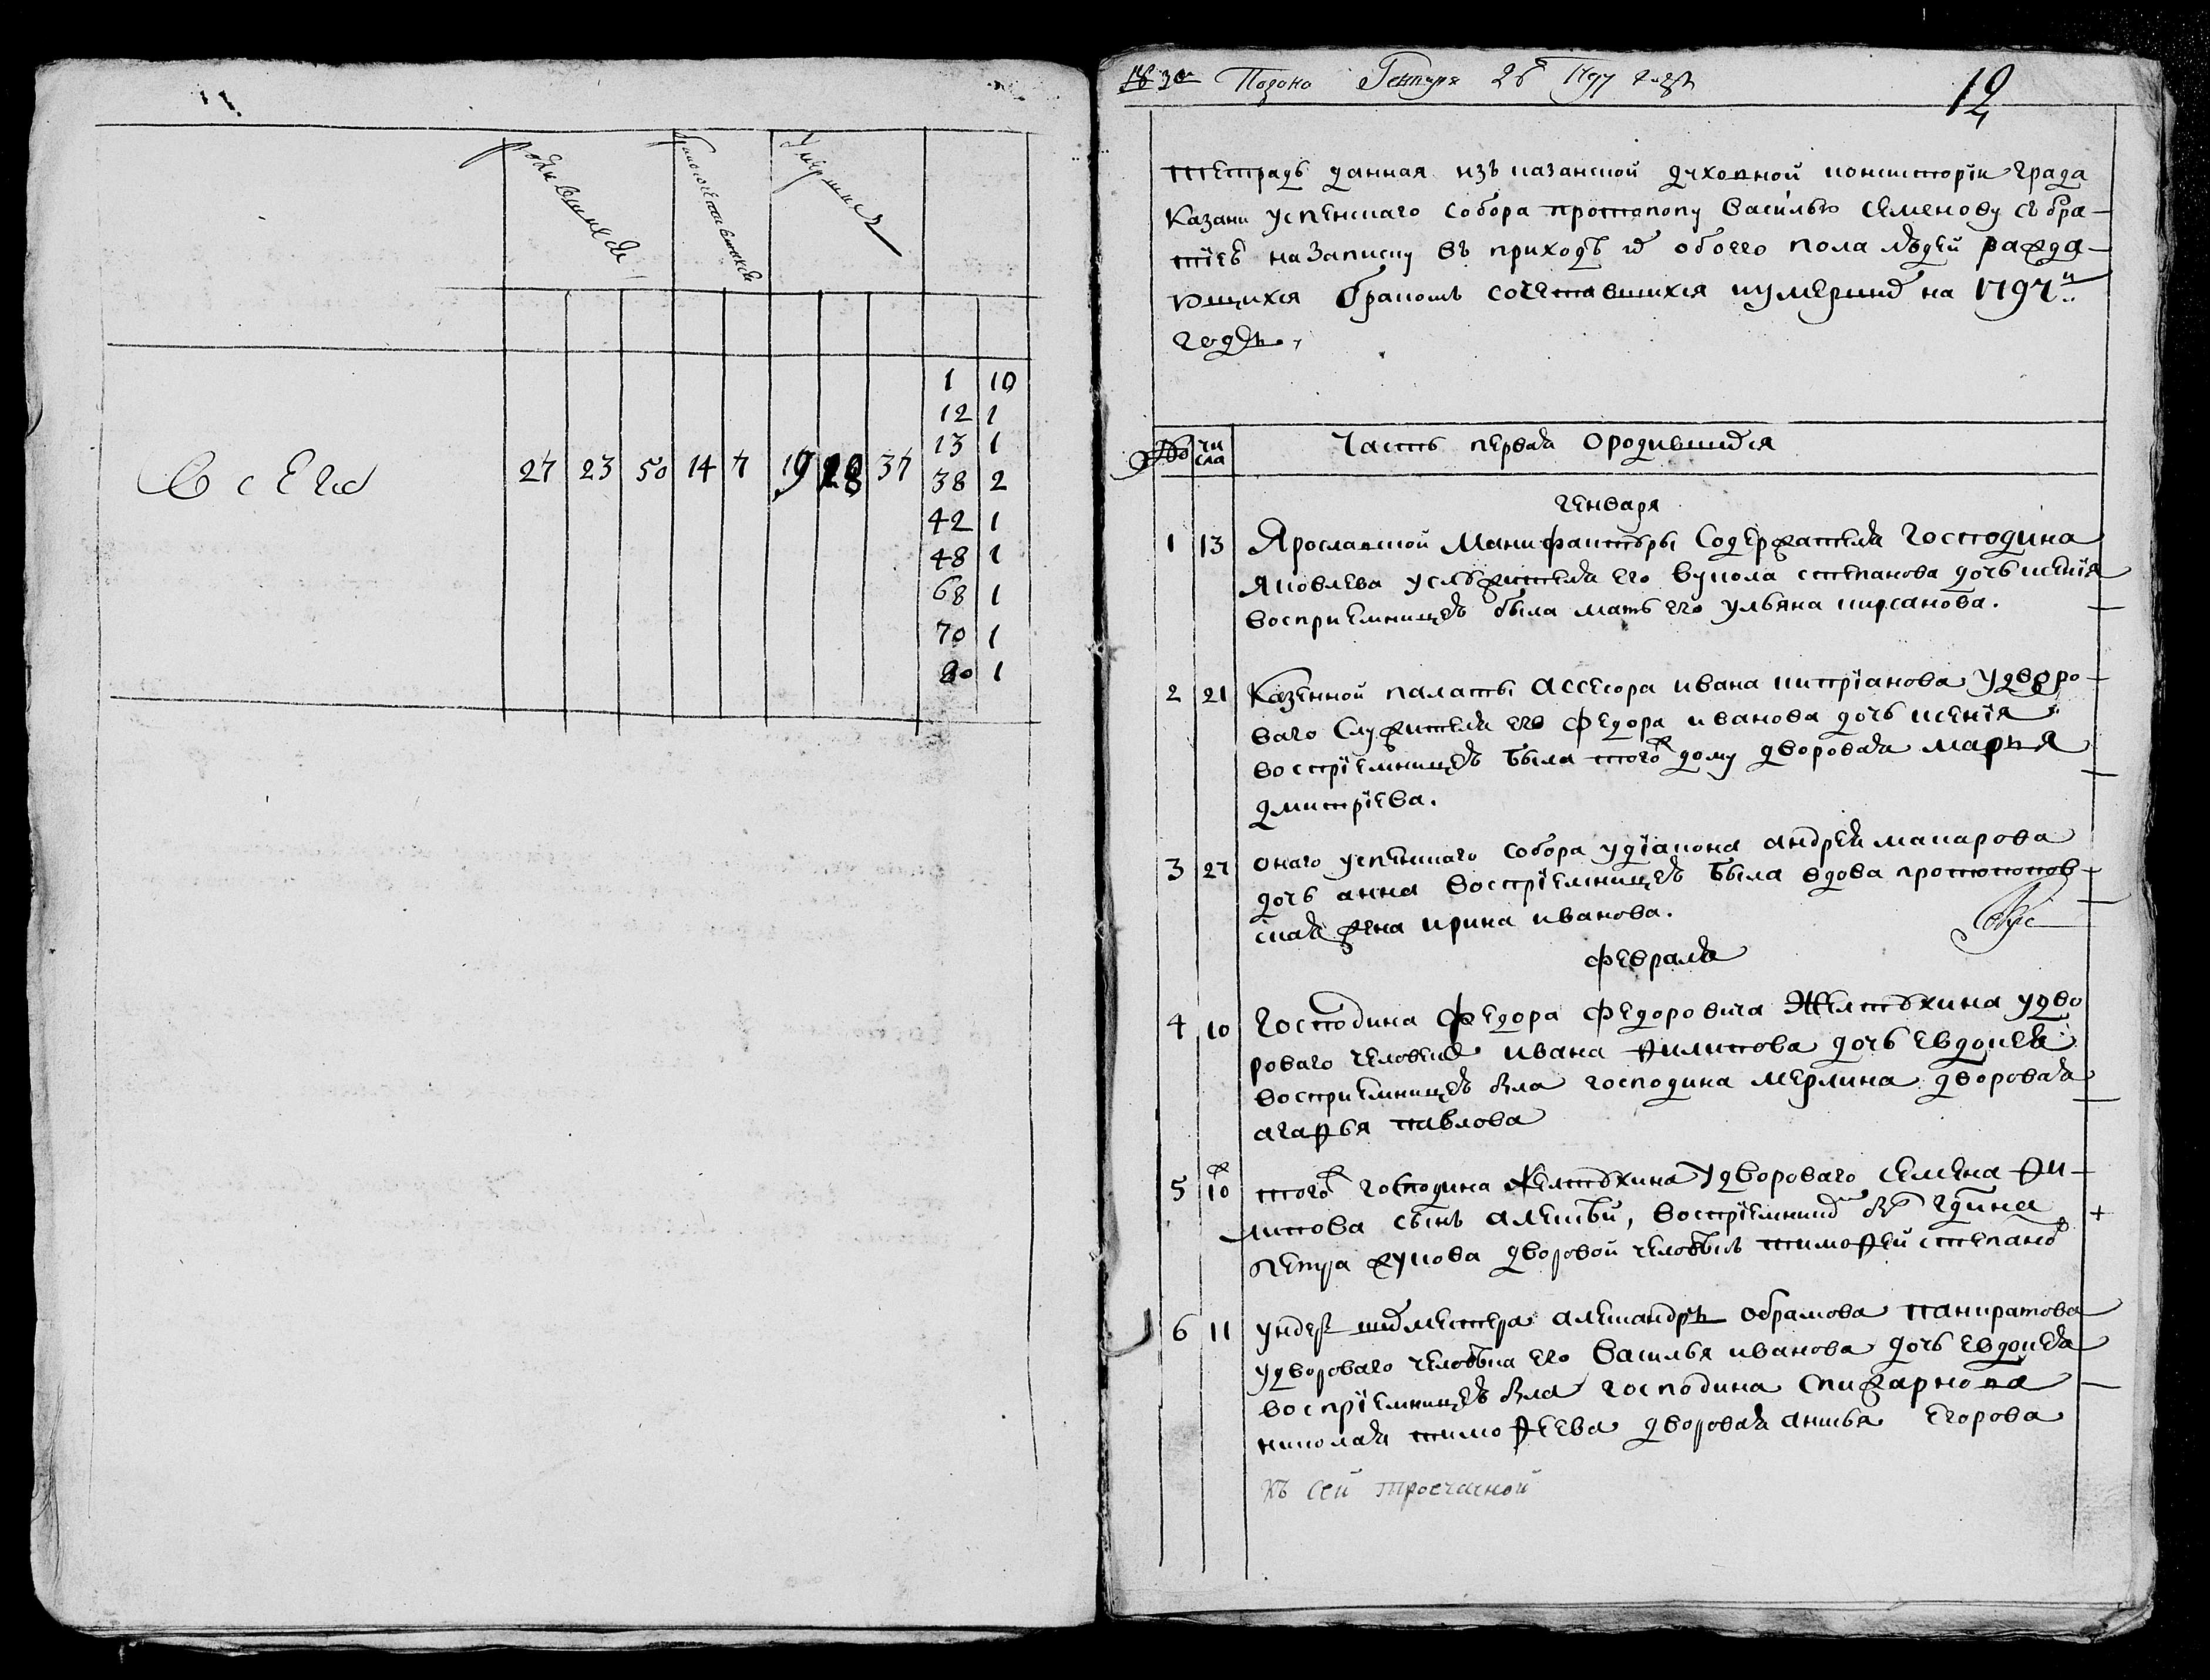 11.
родившихся
бракосочетавшихся
умерших
1 10
12 1
13 1
Всего 27 23 50 14 7 19 18 37 38 2
42 1
48 1
68 1
70 1
80 1
Подано Генваря 26 1797 года
12
Тетрадь данная изъ казанской духовной консисторiи града
Казани успенскаго собора протопопу василью семенову съ бра-
тiею на записку въ приходѣ ихъ обоего пола людей ражда-
ющихся бракомъ сочетавшихся и умершихъ на 1797й
годъ,
число
Часть первая о родившихся
генваря
1 13 Ярославской мануфактуры содержателя господина
яковлева у служителя его вукола степанова дочь ксенiя
восприемницею была мать его ульяна кирсанова.
2 21 Казенной палаты ассесора ивана китрiанова у дворо-
ваго служителя его федора иванова дочь ксенiя
воспрiемницею была тогожъ дому дворовая марья
дмитрiева.
3 27 онаго успенскаго собора у дiакона андрея макарова
дочь анна воспрiемницею была вдова протопопов-
ская жена ирина иванова.
февраля
4 10 господина федора федоровича Желтухина у дво
роваго человека ивана филипова дочь евдокея
восприемницею была господина мерлина дворовая
агафья павлова
5 10ж тогожъ господина желтухина у двороваго семена фи-
липова сынъ алексѣй, воспрiемникомъ былъ гдина
петра жукова дворовой человѣкъ тимофей степановъ
6 11 ундеръ шихтмейстера александръ обрамова панкратова
у двороваго человѣка его василья иванова дочь евдокея
воспрiемницею была господина спижарнова
николая тимофеева дворовая анисья егорова
къ сей троечасной